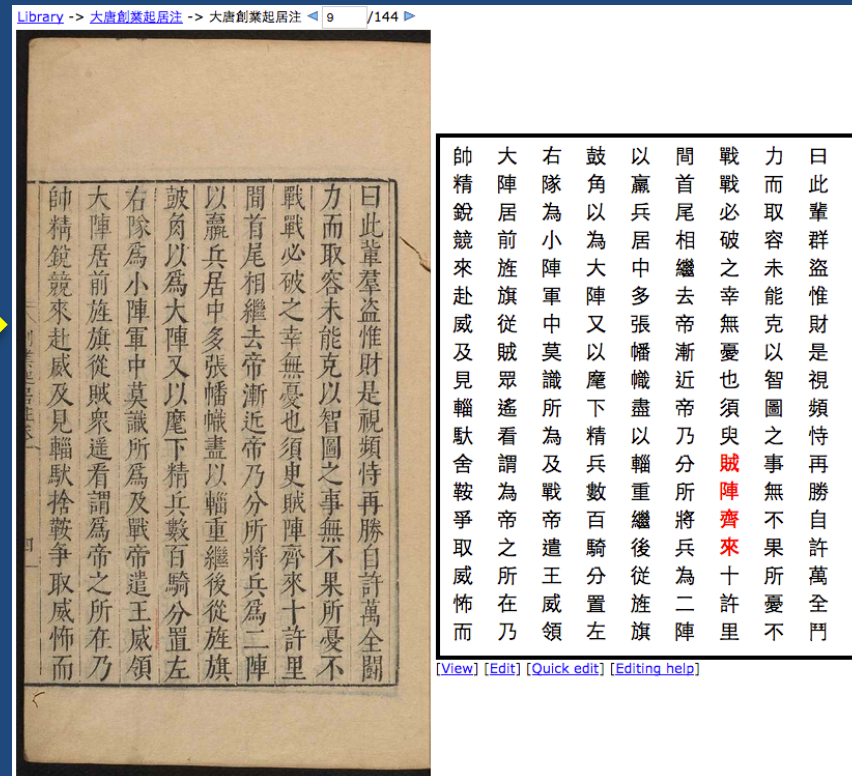 Library -> 大唐創業起居注 -> 大唐創業起居注 9 /144
曰此輩羣盗惟財是視頻恃再勝自許萬全闘
力而取容未能克以智圖之事無不果所憂不
戰戰必破之幸無憂也須臾賊陣齊來十許里
間首尾相繼去帝漸近帝乃分所將兵爲二陣
以羸兵居中多張幡幟盡以輜重繼後從旌旗
鼓角以爲大陣又以麾下精兵數百騎分置左
右隊爲小陣軍中莫識所爲及戰帝遣王威領
大陣居前旌旗從賊衆遥看謂爲帝之所在乃
帥精銳競來赴威及見輜馱捨鞍争取威怖而
曰此輩群盜惟財是視頻恃再勝自許萬全鬥
力而取容未能克以智圖之事無不果所憂不
戰戰必破之幸無憂也須臾賊陣齊來十許里
間首尾相繼去帝漸近帝乃分所將兵為二陣
以羸兵居中多張幡幟盡以輜重繼後從旌旗
鼓角以為大陣又以麾下精兵數百騎分置左
右隊為小陣軍中莫識所為及戰帝遣王威領
大陣居前旌旗從賊眾遙看謂為帝之所在乃
帥精銳競來赴威及見輜馱舍鞍爭取威怖而
[View] [Edit] [Quick edit] [Editing help]